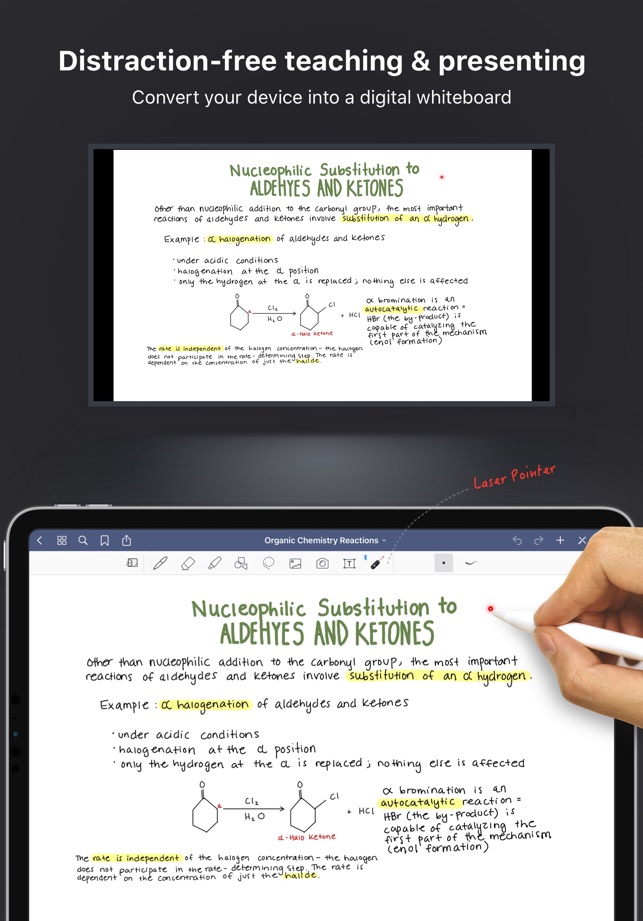 Distraction-free teaching & presenting
Convert your device into a digital whiteboard
Nucleophilic Substitution to
ALDEHYES AND KETONES
Other than nucleophilic addition to the carbonyl group, the most important
reactions of aldehydes and ketones involve substitution of an α hydrogen.
Example : α halogenation of aldehydes and ketones
· under acidic conditions
· halogenation at the α position
· only the hydrogen at the α is replaced ; nothing else is affected
O
α
Cl₂
H₂O
O
Cl
α-Halo Ketone
+ HCl
α bromination is an
autocatalytic reaction =
HBr (the by-product) is
capable of catalyzing the
first part of the mechanism
(enol formation)
The rate is independent of the halogen concentration - the halogen
does not participate in the rate-determining step. The rate is
dependent on the concentration of just the halide.
Laser Pointer
Organic Chemistry Reactions
T
Nucleophilic Substitution to
ALDEHYES AND KETONES
Other than nucleophilic addition to the carbonyl group, the most important
reactions of aldehydes and ketones involve substitution of an α hydrogen.
Example : α halogenation of aldehydes and ketones
· under acidic conditions
· halogenation at the α position
· only the hydrogen at the α is replaced ; nothing else is affected
O
α
Cl₂
H₂O
O
Cl
α-Halo Ketone
+ HCl
α bromination is an
autocatalytic reaction =
HBr (the by-product) is
capable of catalyzing the
first part of the mechanism
(enol formation)
The rate is independent of the halogen concentration - the halogen
does not participate in the rate-determining step. The rate is
dependent on the concentration of just the halide.